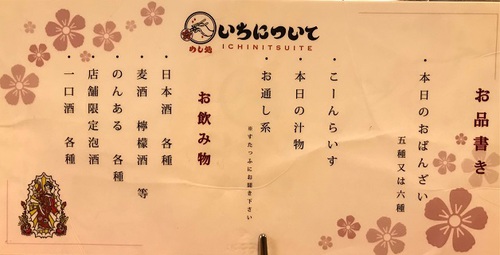 めし処
いちについて
ICHINITSUITE
お品書き
・本日のおばんざい
五種又は六種
・こーんらいす
・本日の汁物
・お通し系
※すたっふにお聞き下さい
お飲み物
・日本酒 各種
・麦酒 檸檬酒 等
・のんある 各種
・店舗限定泡酒
・一口酒 各種